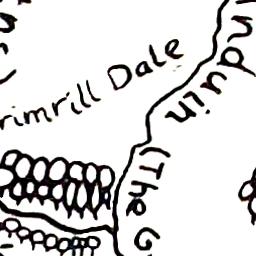 rimrill Dale
nduin
(The G